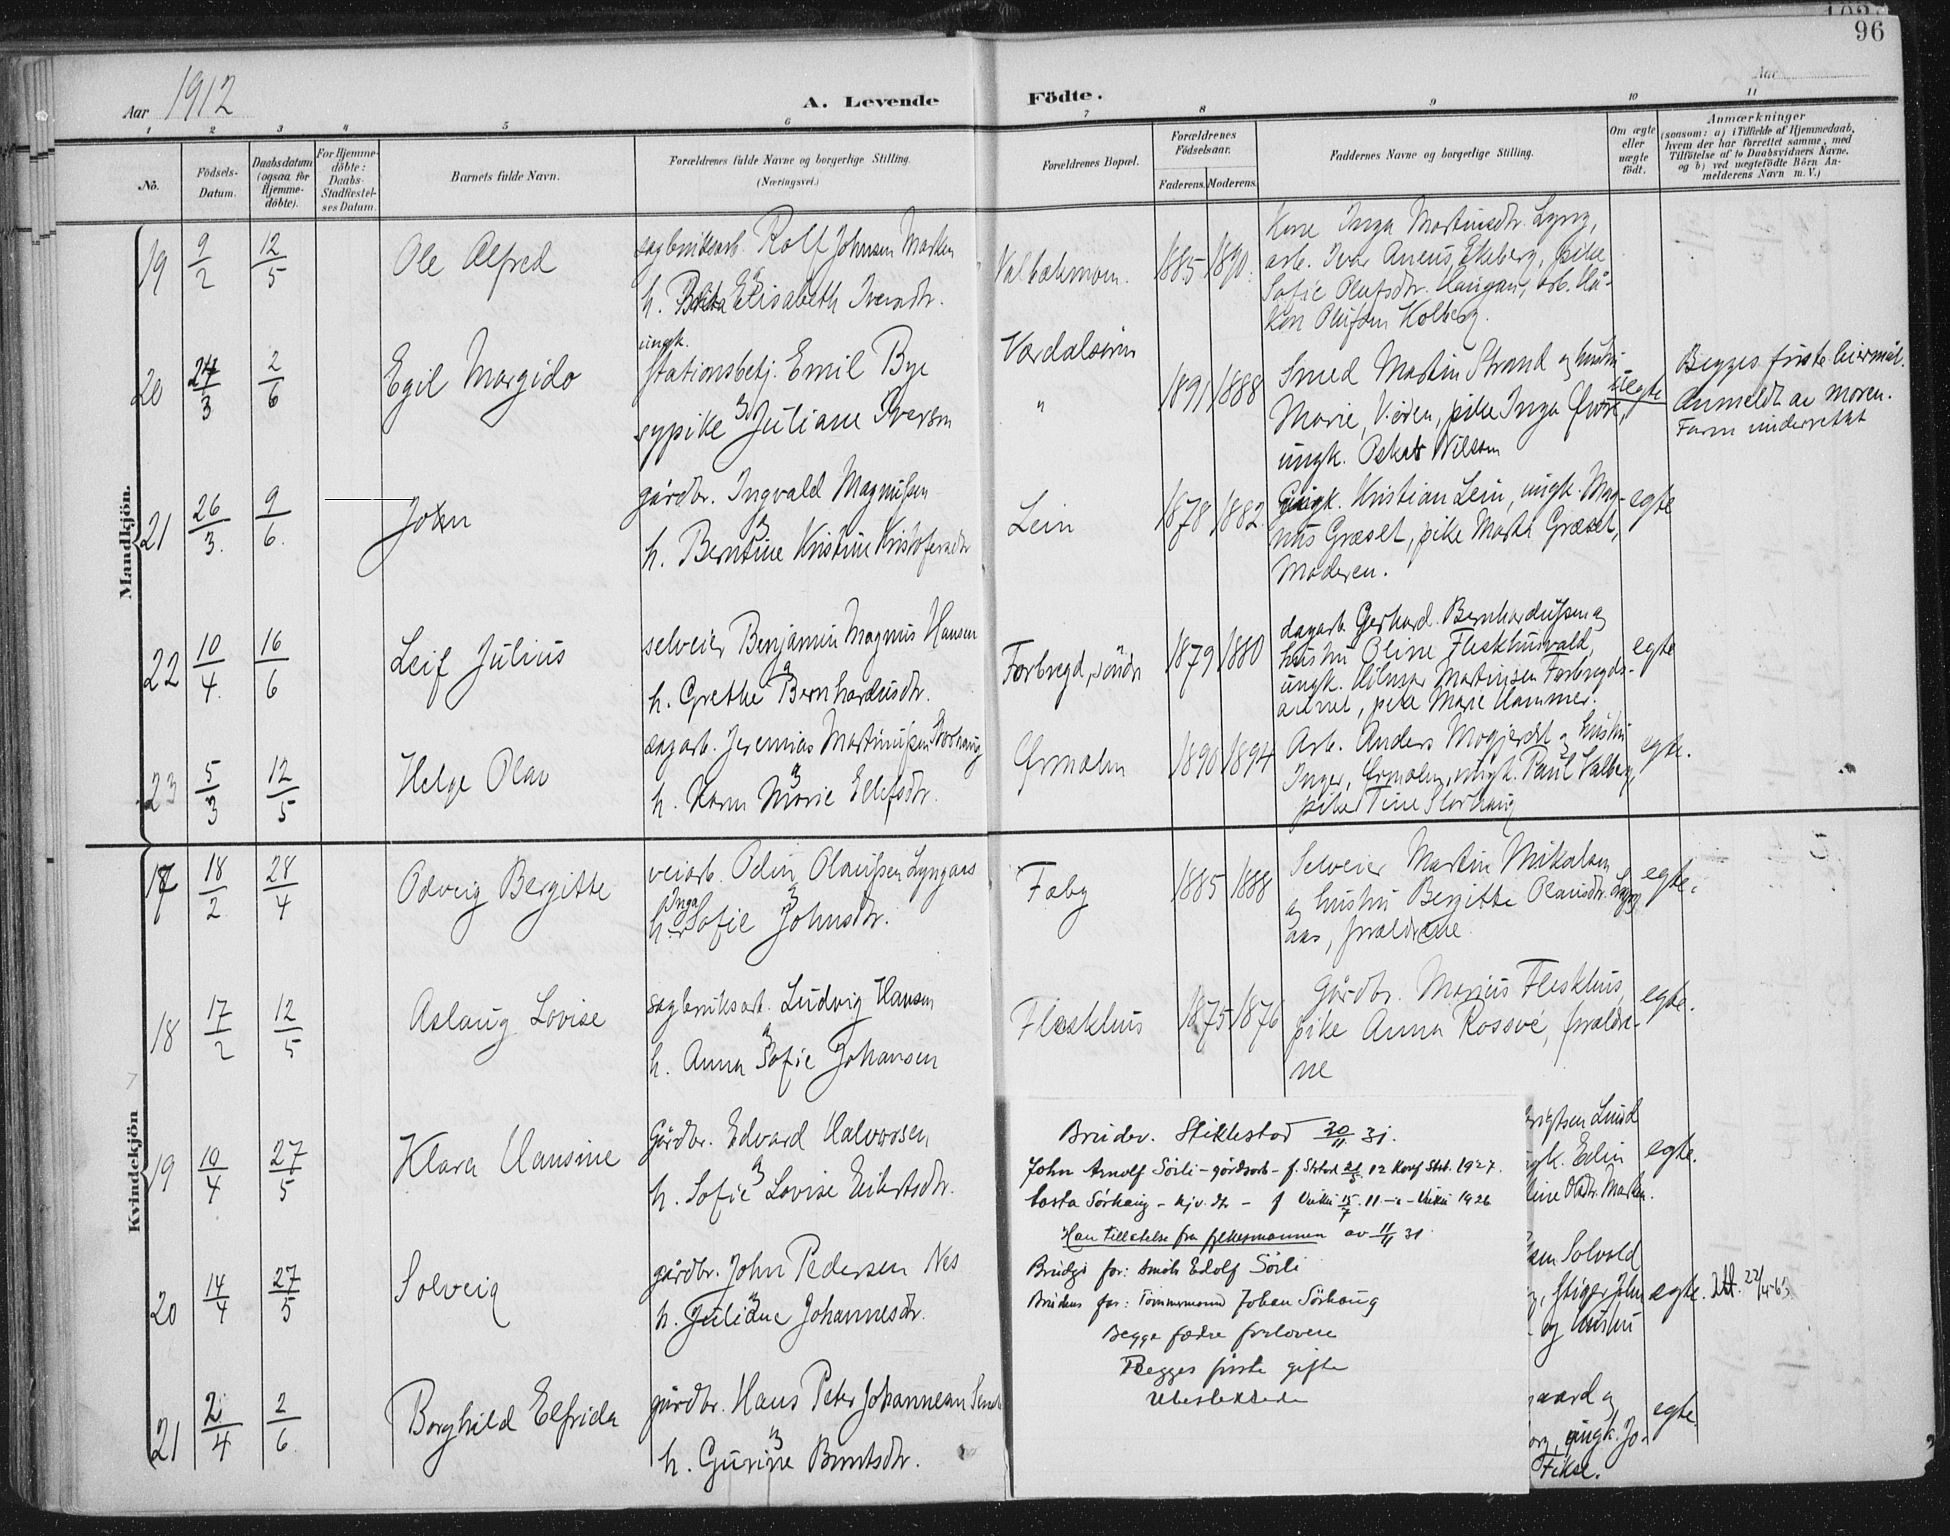 96
Aar 1912
A. Levende Födte.
Aar
1 2 3 4 5 6 7 8 9 10 11
No.
Födsels-Datum.
Daabsdatum (ogsaa for Hjemme-döbte).
For Hjemme-döbte: Daabs-Stadfæstel-ses Datum.
Barnets fulde Navn.
Forældrenes fulde Navne og borgerlige Stilling.
(Næringsvei.)
Forældrenes Bopæl.
Forældrenes Födselsaar.
Faderens. Moderens.
Faddernes Navne og borgerlige Stilling.
Om ægte eller uægte födt.
Anmærkninger
(saasom: a) i Tilfælde af Hjemmedaab,
hvem der har forrettet samme, med
Tilföielse af to Daabsvidners Navne.
og b) ved uægtefödte Börn An-
melderens Navn m. V.)
Mandkjön.
19 9/2 12/5 Ole Alfred
sagbruksarb. Rolf Johnsen Marken
h. Elisabeth Iversdtr.
1885 1890.
Kone Inga Martinsdtr. Lyng,
arb. Ivar Aneus Ekeberg, pike
Sofie Olufsdtr. Haugan, arb. Hå-
kon Olufsen Kolberg.
20 24/3 2/6 Egil Margido
ungk.
stationsbetj. Emil Bye
sypike Juliane Iversen
Værdalsören
"
1891 1888
Smed Martin Strand og hustru
Marie, Veien, pike Inga
ungk. Oskar Nilsson
uegte
Begges første leiermål.
Anmeldt av moren.
Faren underrettet
21 26/3. 9/6. John
gårdbr. Ingvald Magnussen
h. Berntine Kristine Kristofersdtr
Lein
1878 1882.
ungk. Kristian Lein, ungk. Mag-
nus Græset, pike Marta Græset,
Moderen.
egte
22 10/4. 16/6 Leif Julius
selveier Benjamin Magnus Hansen
h. Grethe Bernhardusdtr.
Forbregd, söndr
1879 1880
dagarb. Gerhard Bernhardussen og
hustru Oline Fleskhusvald,
ungk. Hilmar Martinsen Forbregds-
aunet, pike Marie Hammer.
egte
23 5/3 12/5 Helge Olav
dagarb. Jeremias Martinussen Storhaug
h. Karen Marie Ellefsdtr.
Ørmelen
1890 1894
Arb. Anders Mogjerdet og hustru
Inger, Ørmelen, ungk. Paul Valberg,
pike Tine Storhaug
egte.
Kvindekjön
17 18/2 28/4 Odveig Bergitte
veiarb. Odin Olaussen Lyngaas
Inga
h. Sofie Johnsdtr.
Faby
1885 1888
Selveier Martin Mikalsen
og hustru Bergitte Olausdtr. Lyng-
aas, forældrene
egte.
18 17/2 12/5 Aslaug Lovise
sagbruksarb. Ludvig Hansen
h. Anna Sofie Johansen
Fleskhus
1875 1876
Gårdbr. Marius Fleskhus,
pike Anna Rossvé, forældre-
ne
egte.
19 10/4 27/5 Klara Hansine
Gårdbr. Edvard Halvorsen
h. Sofie Lovise Eriksdtr.
Lund
ngk. Edin
line Olsdtr. Marken.
egte.
20 14/4 27/5 Solveig
gårdbr. John Pedersen Nes
h. Juliane Johannesdtr.
sen Solvold
stiger John
og hustru
egte.
Utt. 22/4-63
21 2/4 2/6 Borghild Elfrida
gårdbr. Hans Peter Johannesen
h. Gurine Berntsdtr.
gaard og
org, ungk. Jo-
Fikse.
egte.
Brudev. Stiklestad 30/11 31.
John Arnolf Sörli - gårdsarb - f. Stkst 21/3 12 Konf Stkst. 1927.
Sörhaug - hjv. dtr - f Vuku 15/7. 11 - - Vuku 1926
Han tillatelse fra fylkesmannen av 11/11 31.
Brudgs far: Arnolt Edolf Sörli
Brudens far: Tömmermand Johan Sörhaug
Begge fædre forlovere
Begges förste gifte
Ubeslektede